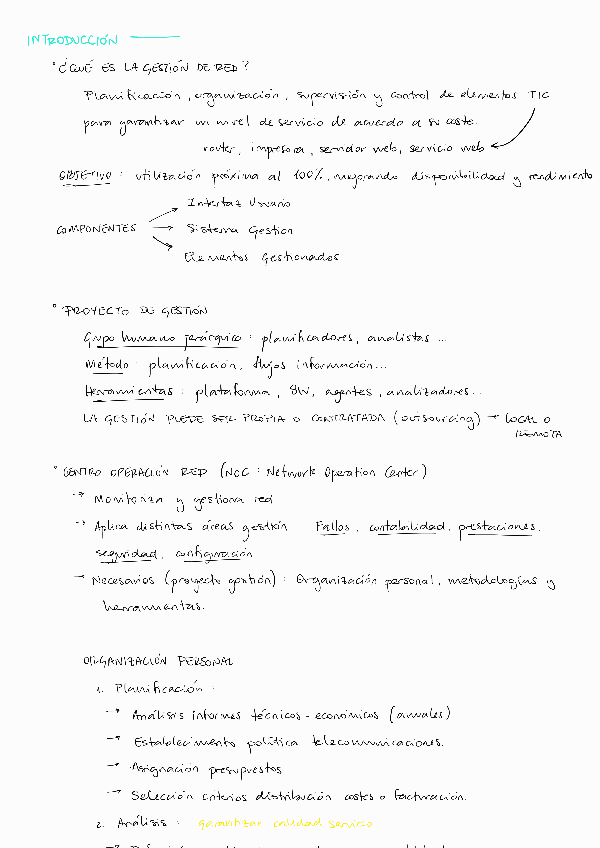 INTRODUCCIÓN
° ¿QUÉ ES LA GESTIÓN DE RED?
Planificación, organización, supervisión y control de elementos TIC
para garantizar un nivel de servicio de acuerdo a su coste.
router, impresora, servidor web, servicio web ←
OBJETIVO: utilización próxima al 100%, mejorando disponibilidad y rendimiento
Interfaz Usuario
COMPONENTES → Sistema Gestión
Elementos Gestionados
° PROYECTO DE GESTIÓN
Grupo humano jerárquico: planificadores, analistas ...
Método: planificación, flujos información...
Herramientas: plataforma, SW, agentes, analizadores...
LA GESTIÓN PUEDE SER PROPIA O CONTRATADA (outsourcing) → LOCAL O
REMOTA
° CENTRO OPERACIÓN RED (NOC: Network Operation Center)
→ Monitoriza y gestiona red
→ Aplica distintas áreas gestión Fallos, contabilidad, prestaciones,
seguridad, configuración
→ Necesarios (proyecto gestión): Organización personal, metodologías y
herramientas.
ORGANIZACIÓN PERSONAL
1. Planificación:
→ Análisis informes técnicos-económicos (anuales)
→ Establecimiento política telecomunicaciones.
→ Asignación presupuestos
→ Selección criterios distribución costes o facturación.
2. Análisis: Garantizar calidad servicio